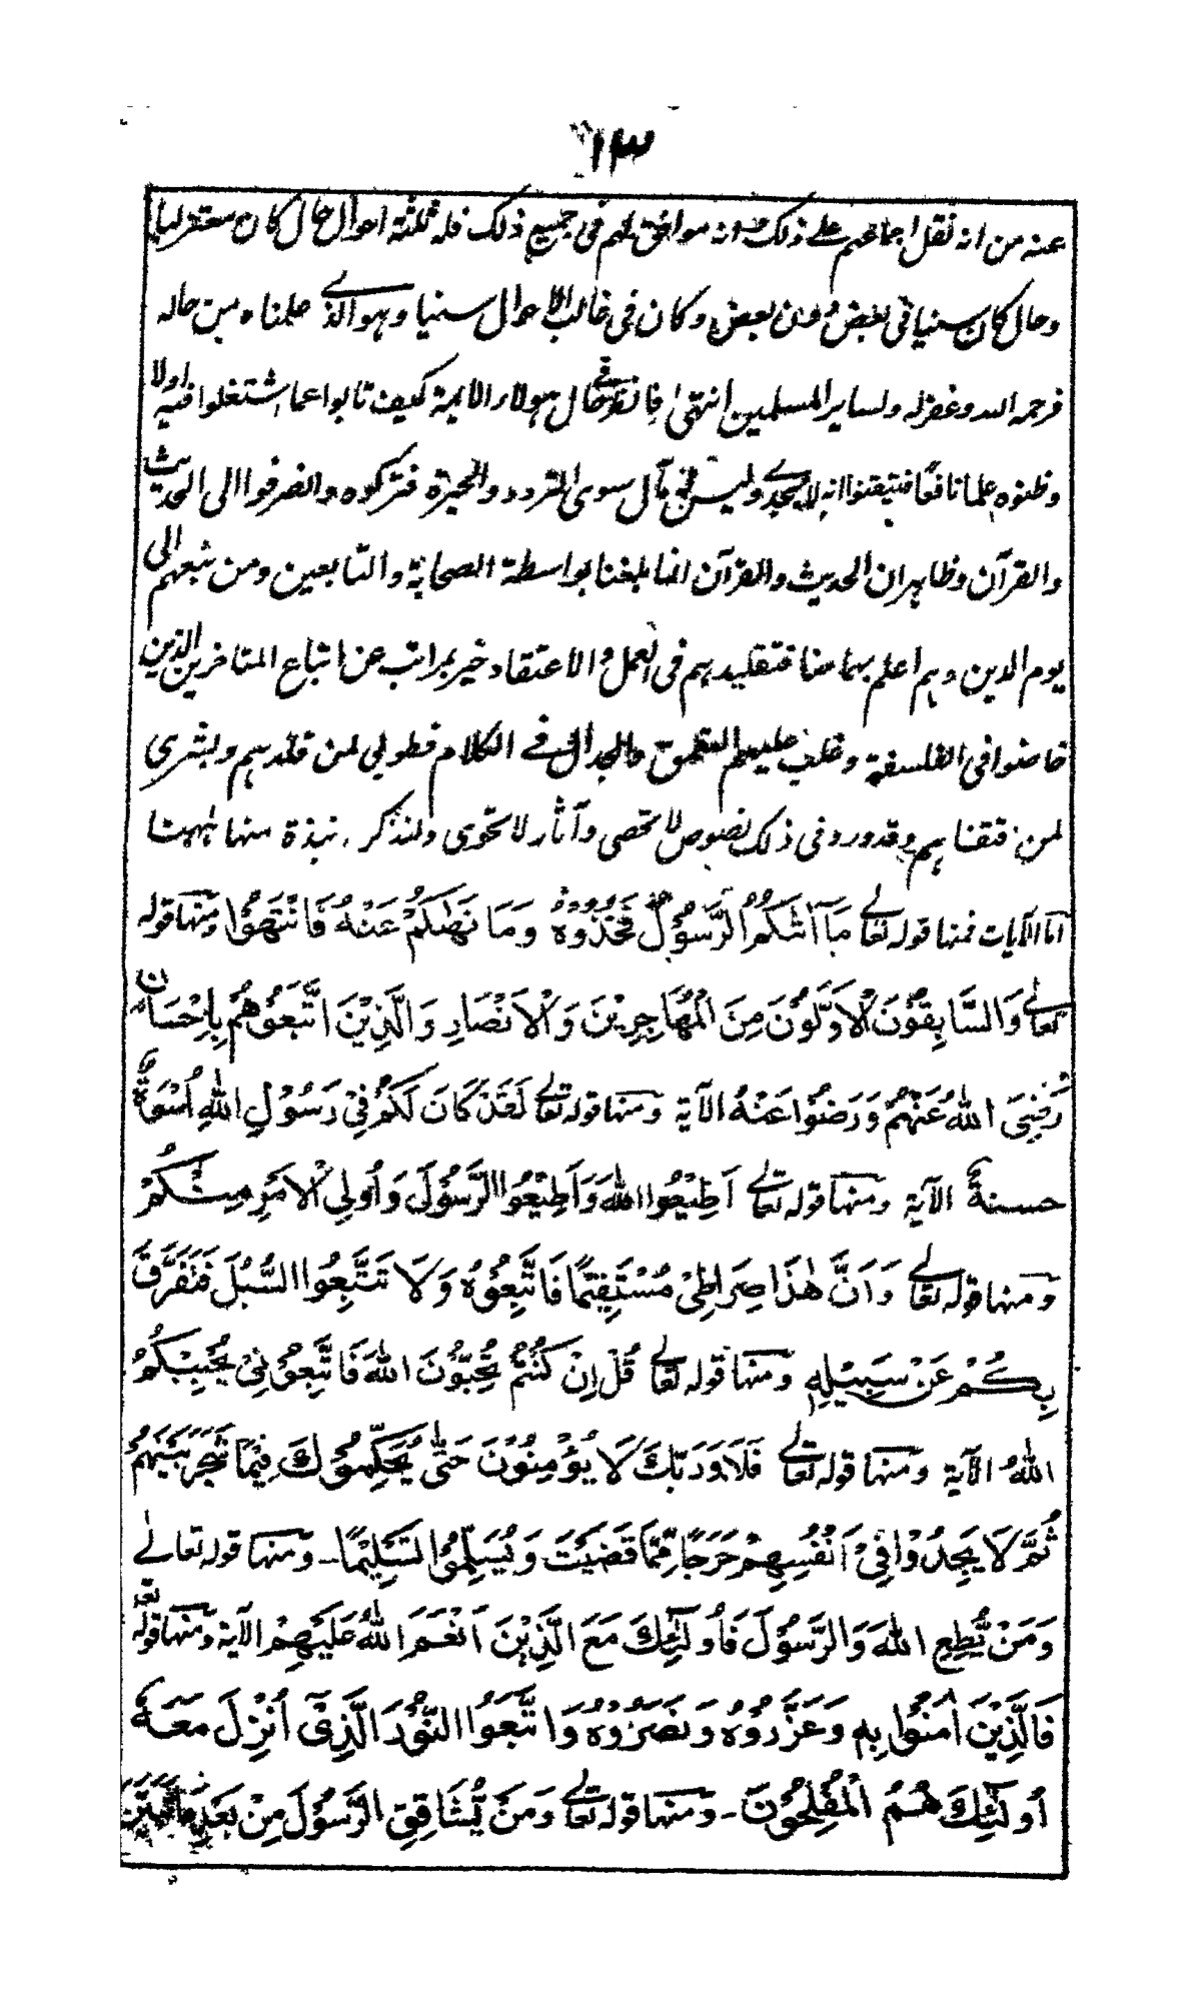 ١٣
عنه من انه نقل اجماعهم على ذلك وانه موافق لهم فى جميع ذلك فله ثلثة احوال حال كان معتزليا
وحال كان سنيا فى بعض دون بعض وكان فى غالب الاحوال سنيا وهو الذى علمناه من حاله
فرحمه الله وغفر له ولساير المسلمين انتهى فانظر فى حال هولاء الايمة كيف تابوا عما اشتغلوا فيه اولا
وظنوه علما نافعا فتيقنوا انه لا يجدى وليس فى مآل سوى التردد والحيرة فتركوه وانصرفوا الى الحديث
والقرآن وظاهر ان الحديث والقرآن انما بلغنا بواسطة الصحابة والتابعين ومن تبعهم الى
يوم الدين وهم اعلم بهما منا فتقليدهم فى العمل والاعتقاد خير بمراتب عن اتباع المتاخرين الذين
خاضوا فى الفلسفة وغلب عليهم التعمق والجدال فى الكلام فطوبى لمن قلدهم وبشرى
لمن اقتفاهم وقد ورد فى ذلك نصوص لا تحصى وآثار لا تحوى ولنذكر نبذة منها ههنا
اما الآيات فمنها قوله تعالى مَآ اٰتٰىكُمُ الرَّسُوْلُ فَخُذُوْهُ وَمَا نَهٰىكُمْ عَنْهُ فَانْتَهُوْا ومنها قوله
تعالى وَالسَّابِقُوْنَ الْاَوَّلُوْنَ مِنَ الْمُهَاجِرِيْنَ وَالْاَنْصَارِ وَالَّذِيْنَ اتَّبَعُوْهُمْ بِاِحْسَانٍ
رَّضِيَ اللهُ عَنْهُمْ وَرَضُوْا عَنْهُ الآية ومنها قوله تعالى لَقَدْ كَانَ لَكُمْ فِيْ رَسُوْلِ اللهِ اُسْوَةٌ
حسنةٌ الآية ومنها قوله تعالى اَطِيْعُوا اللهَ وَاَطِيْعُوا الرَّسُوْلَ وَاُولِي الْاَمْرِ مِنْكُمْ
ومنها قوله تعالى وَاَنَّ هٰذَا صِرَاطِيْ مُسْتَقِيْمًا فَاتَّبِعُوْهُ وَلَا تَتَّبِعُوا السُّبُلَ فَتَفَرَّقَ
بِكُمْ عَنْ سَبِيْلِهٖ ومنها قوله تعالى قُلْ اِنْ كُنْتُمْ تُحِبُّوْنَ اللهَ فَاتَّبِعُوْنِيْ يُحْبِبْكُمُ
اللهُ الآية ومنها قوله تعالى فَلَا وَرَبِّكَ لَا يُؤْمِنُوْنَ حَتّٰى يُحَكِّمُوْكَ فِيْمَا شَجَرَ بَيْنَهُمْ
ثُمَّ لَا يَجِدُوْا فِيْ اَنْفُسِهِمْ حَرَجًا مِّمَّا قَضَيْتَ وَيُسَلِّمُوْا تَسْلِيْمًا۔ ومنها قوله تعالى
وَمَنْ يُّطِعِ اللهَ وَالرَّسُوْلَ فَاُولٰٓئِكَ مَعَ الَّذِيْنَ اَنْعَمَ اللهُ عَلَيْهِمْ الآية ومنها قوله تعـ
فَالَّذِيْنَ اٰمَنُوْا بِهٖ وَعَزَّرُوْهُ وَنَصَرُوْهُ وَاتَّبَعُوا النُّوْرَ الَّذِيْ اُنْزِلَ مَعَهٗ
اُولٰٓئِكَ هُمُ الْمُفْلِحُوْنَ۔ ومنها قوله تعالى وَمَنْ يُّشَاقِقِ الرَّسُوْلَ مِنْ بَعْدِ مَا تَبَيَّنَ